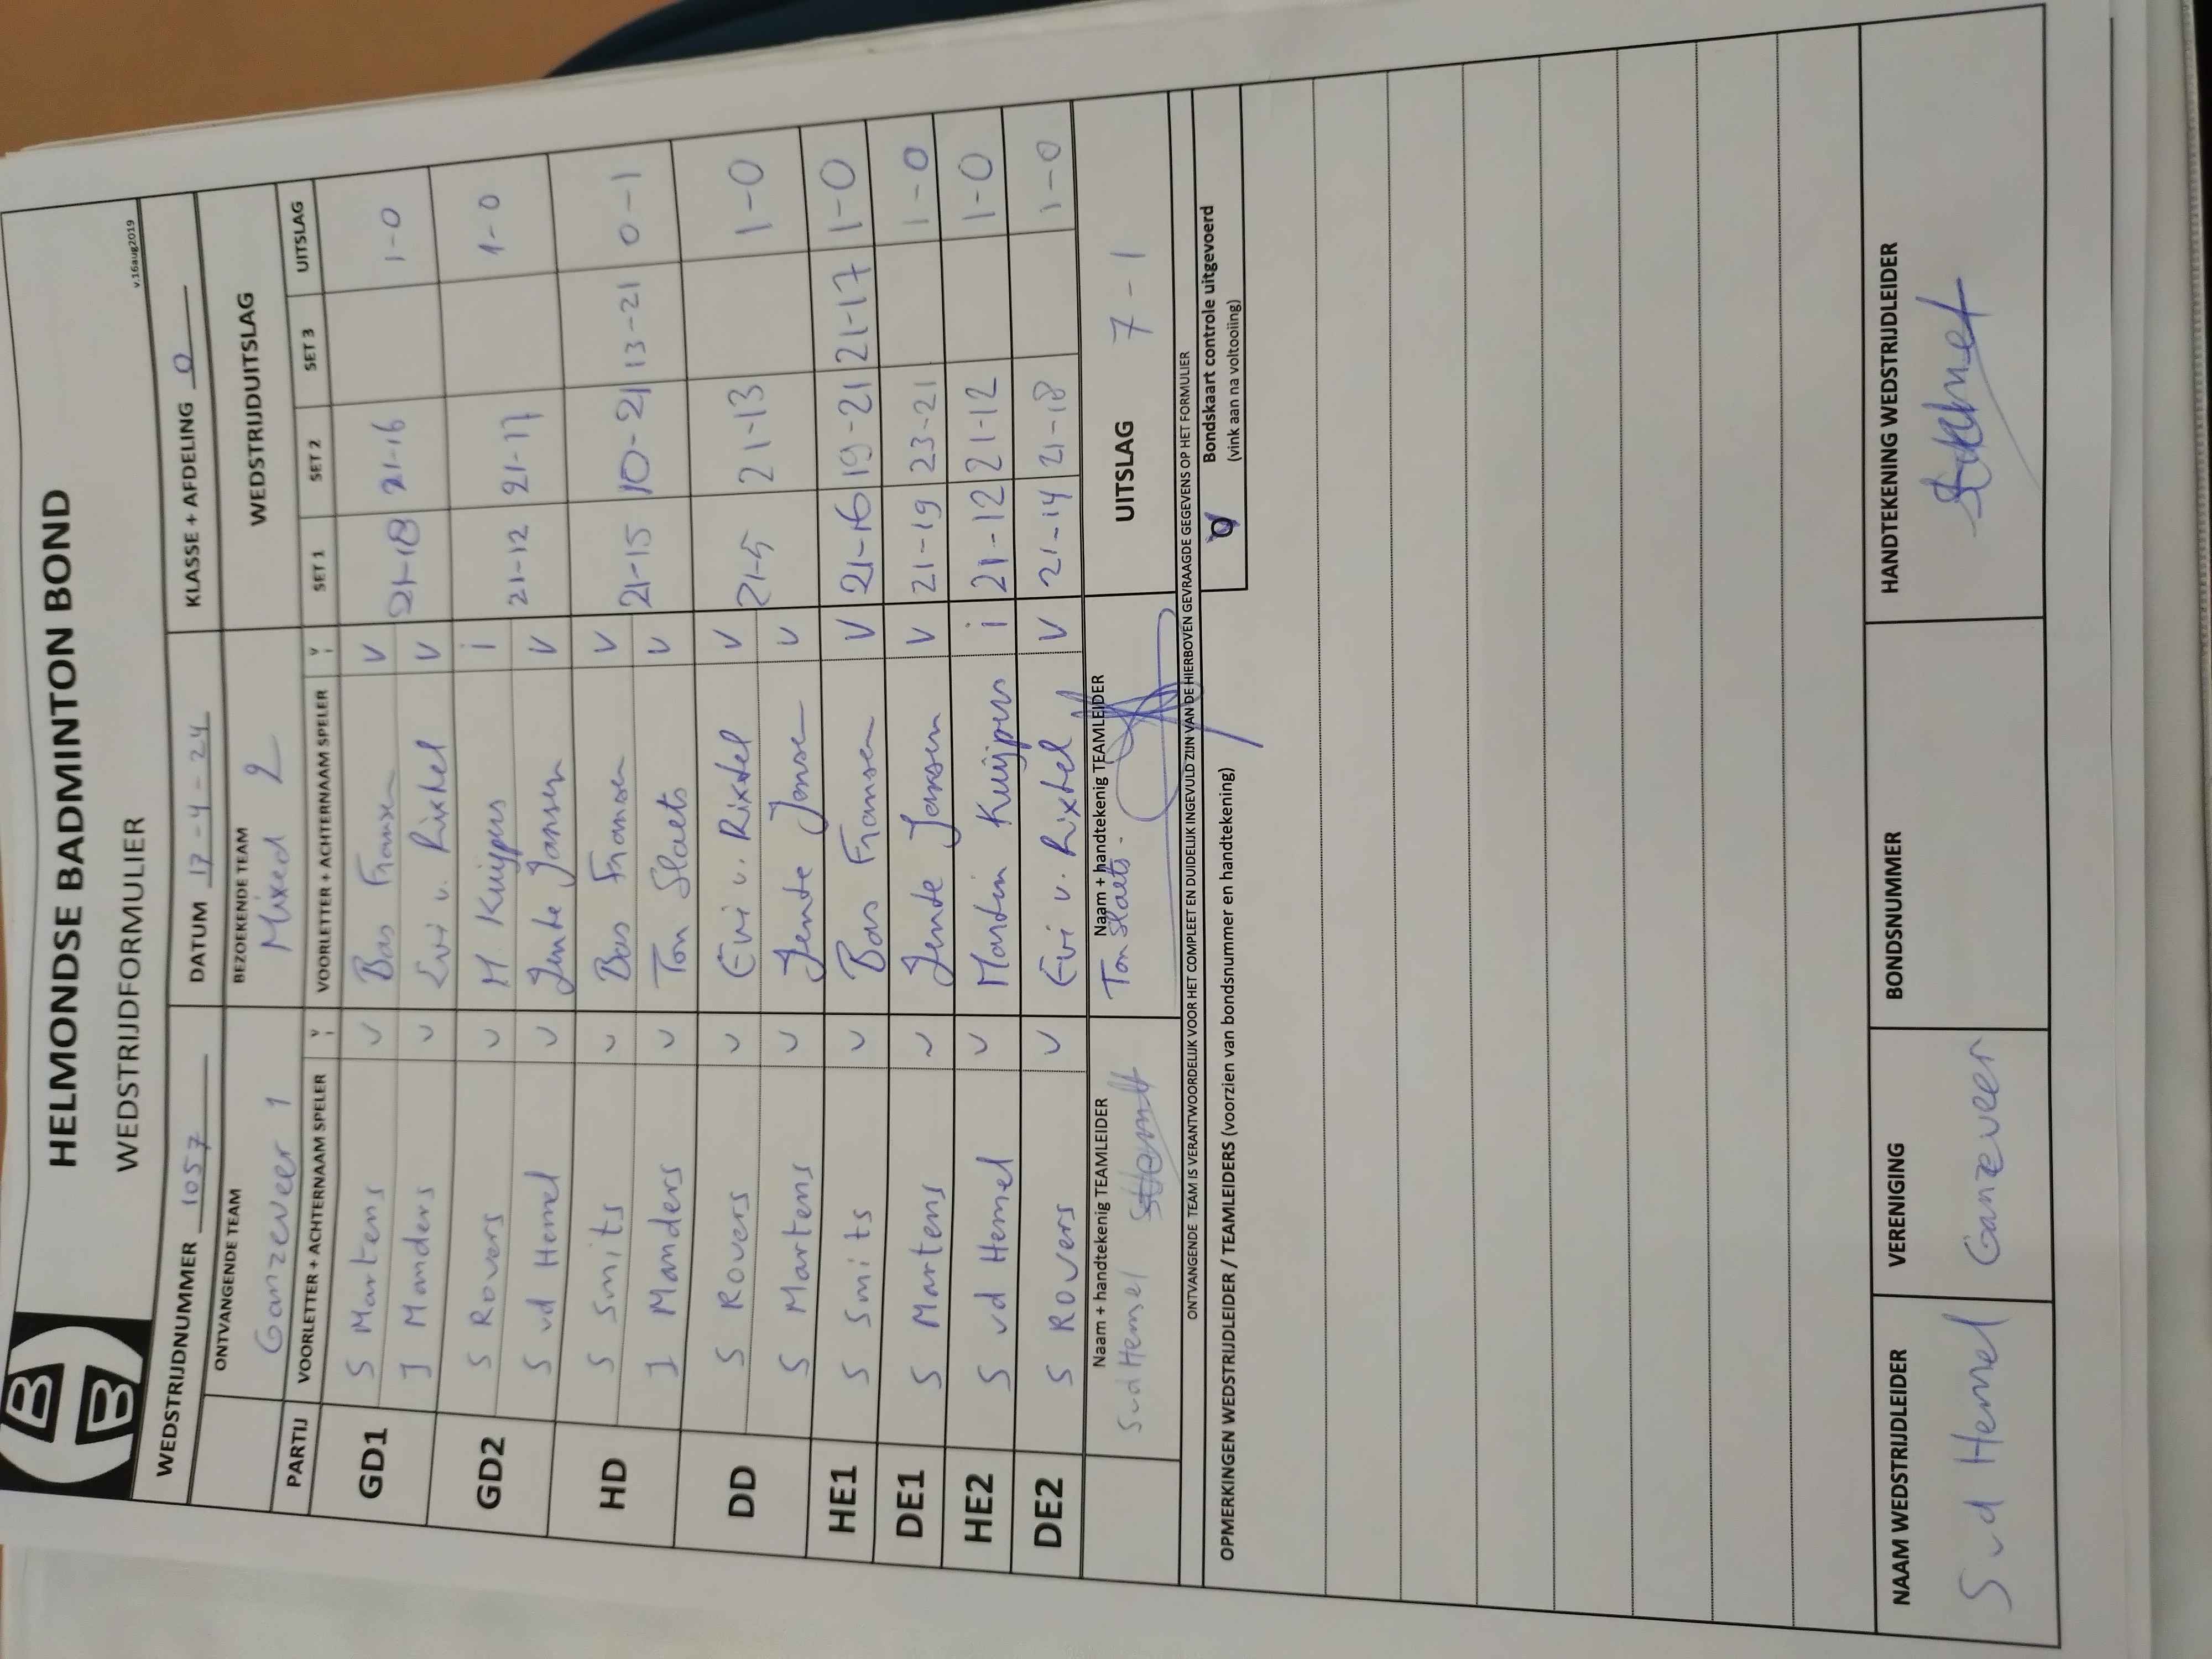 HELMONDSE BADMINTON BOND
WEDSTRIJDFORMULIER
v.16aug2019
WEDSTRIJDNUMMER 1057 DATUM 17-4-24 KLASSE + AFDELING 0
ONTVANGENDE TEAM BEZOEKENDE TEAM WEDSTRIJDUITSLAG
Ganzeveer 1 Mixed 2
PARTIJ VOORLETTER + ACHTERNAAM SPELER V I VOORLETTER + ACHTERNAAM SPELER V I SET 1 SET 2 SET 3 UITSLAG
GD1 S Martens v Bas Fransen v 21-18 21-16 1-0
J Manders v Evi v. Rixtel v
GD2 S Rovers v M. Kuijpers i 21-12 21-17 1-0
S vd Hemel v Jente Jansen v
HD S Smits v Bas Fransen v 21-15 10-21 13-21 0-1
J Manders v Ton Slaets v
DD S Rovers v Evi v. Rixtel v 21-5 21-13 1-0
S Martens v Jente Jansen v
HE1 S Smits v Bas Fransen V 21-16 19-21 21-17 1-0
DE1 S Martens v Jente Jansen V 21-19 23-21 1-0
HE2 S vd Hemel v Martin Kuijpers i 21-12 21-12 1-0
DE2 S Rovers v Evi v. Rixtel V 21-14 21-18 1-0
Naam + handtekenig TEAMLEIDER Naam + handtekenig TEAMLEIDER UITSLAG 7-1
S vd Hemel Ton Slaets
ONTVANGENDE TEAM IS VERANTWOORDELIJK VOOR HET COMPLEET EN DUIDELIJK INGEVULD ZIJN VAN DE HIERBOVEN GEVRAAGDE GEGEVENS OP HET FORMULIER
OPMERKINGEN WEDSTRIJDLEIDER / TEAMLEIDERS (voorzien van bondsnummer en handtekening)
Bondskaart controle uitgevoerd
(vink aan na voltooiing)
NAAM WEDSTRIJDLEIDER VERENIGING BONDSNUMMER HANDTEKENING WEDSTRIJDLEIDER
S vd Hemel Ganzeveer